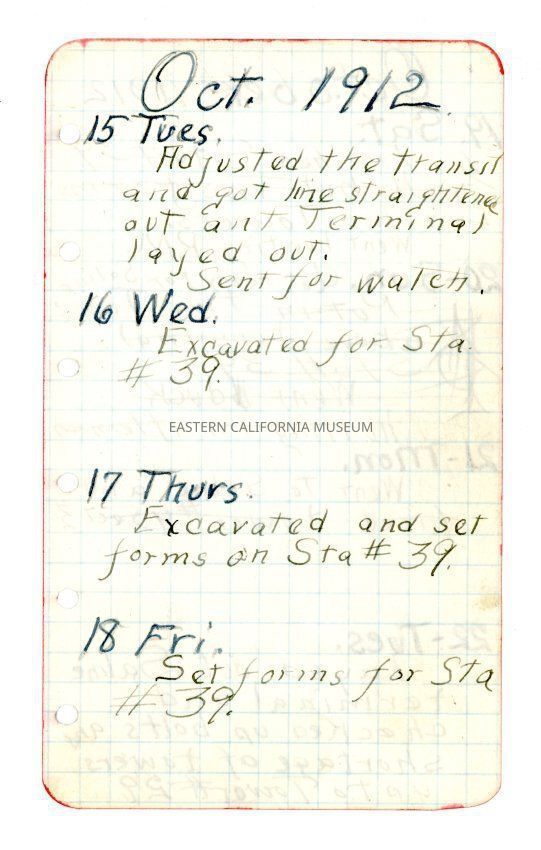 Oct. 1912
15 Tues.
Adjusted the transit
and got line straightened
out and Terminal
layed out.
Sent for watch.
16 Wed.
Excavated for Sta.
# 39.
EASTERN CALIFORNIA MUSEUM
17 Thurs.
Excavated and set
forms on Sta # 39.
18 Fri.
Set forms for Sta
# 39.